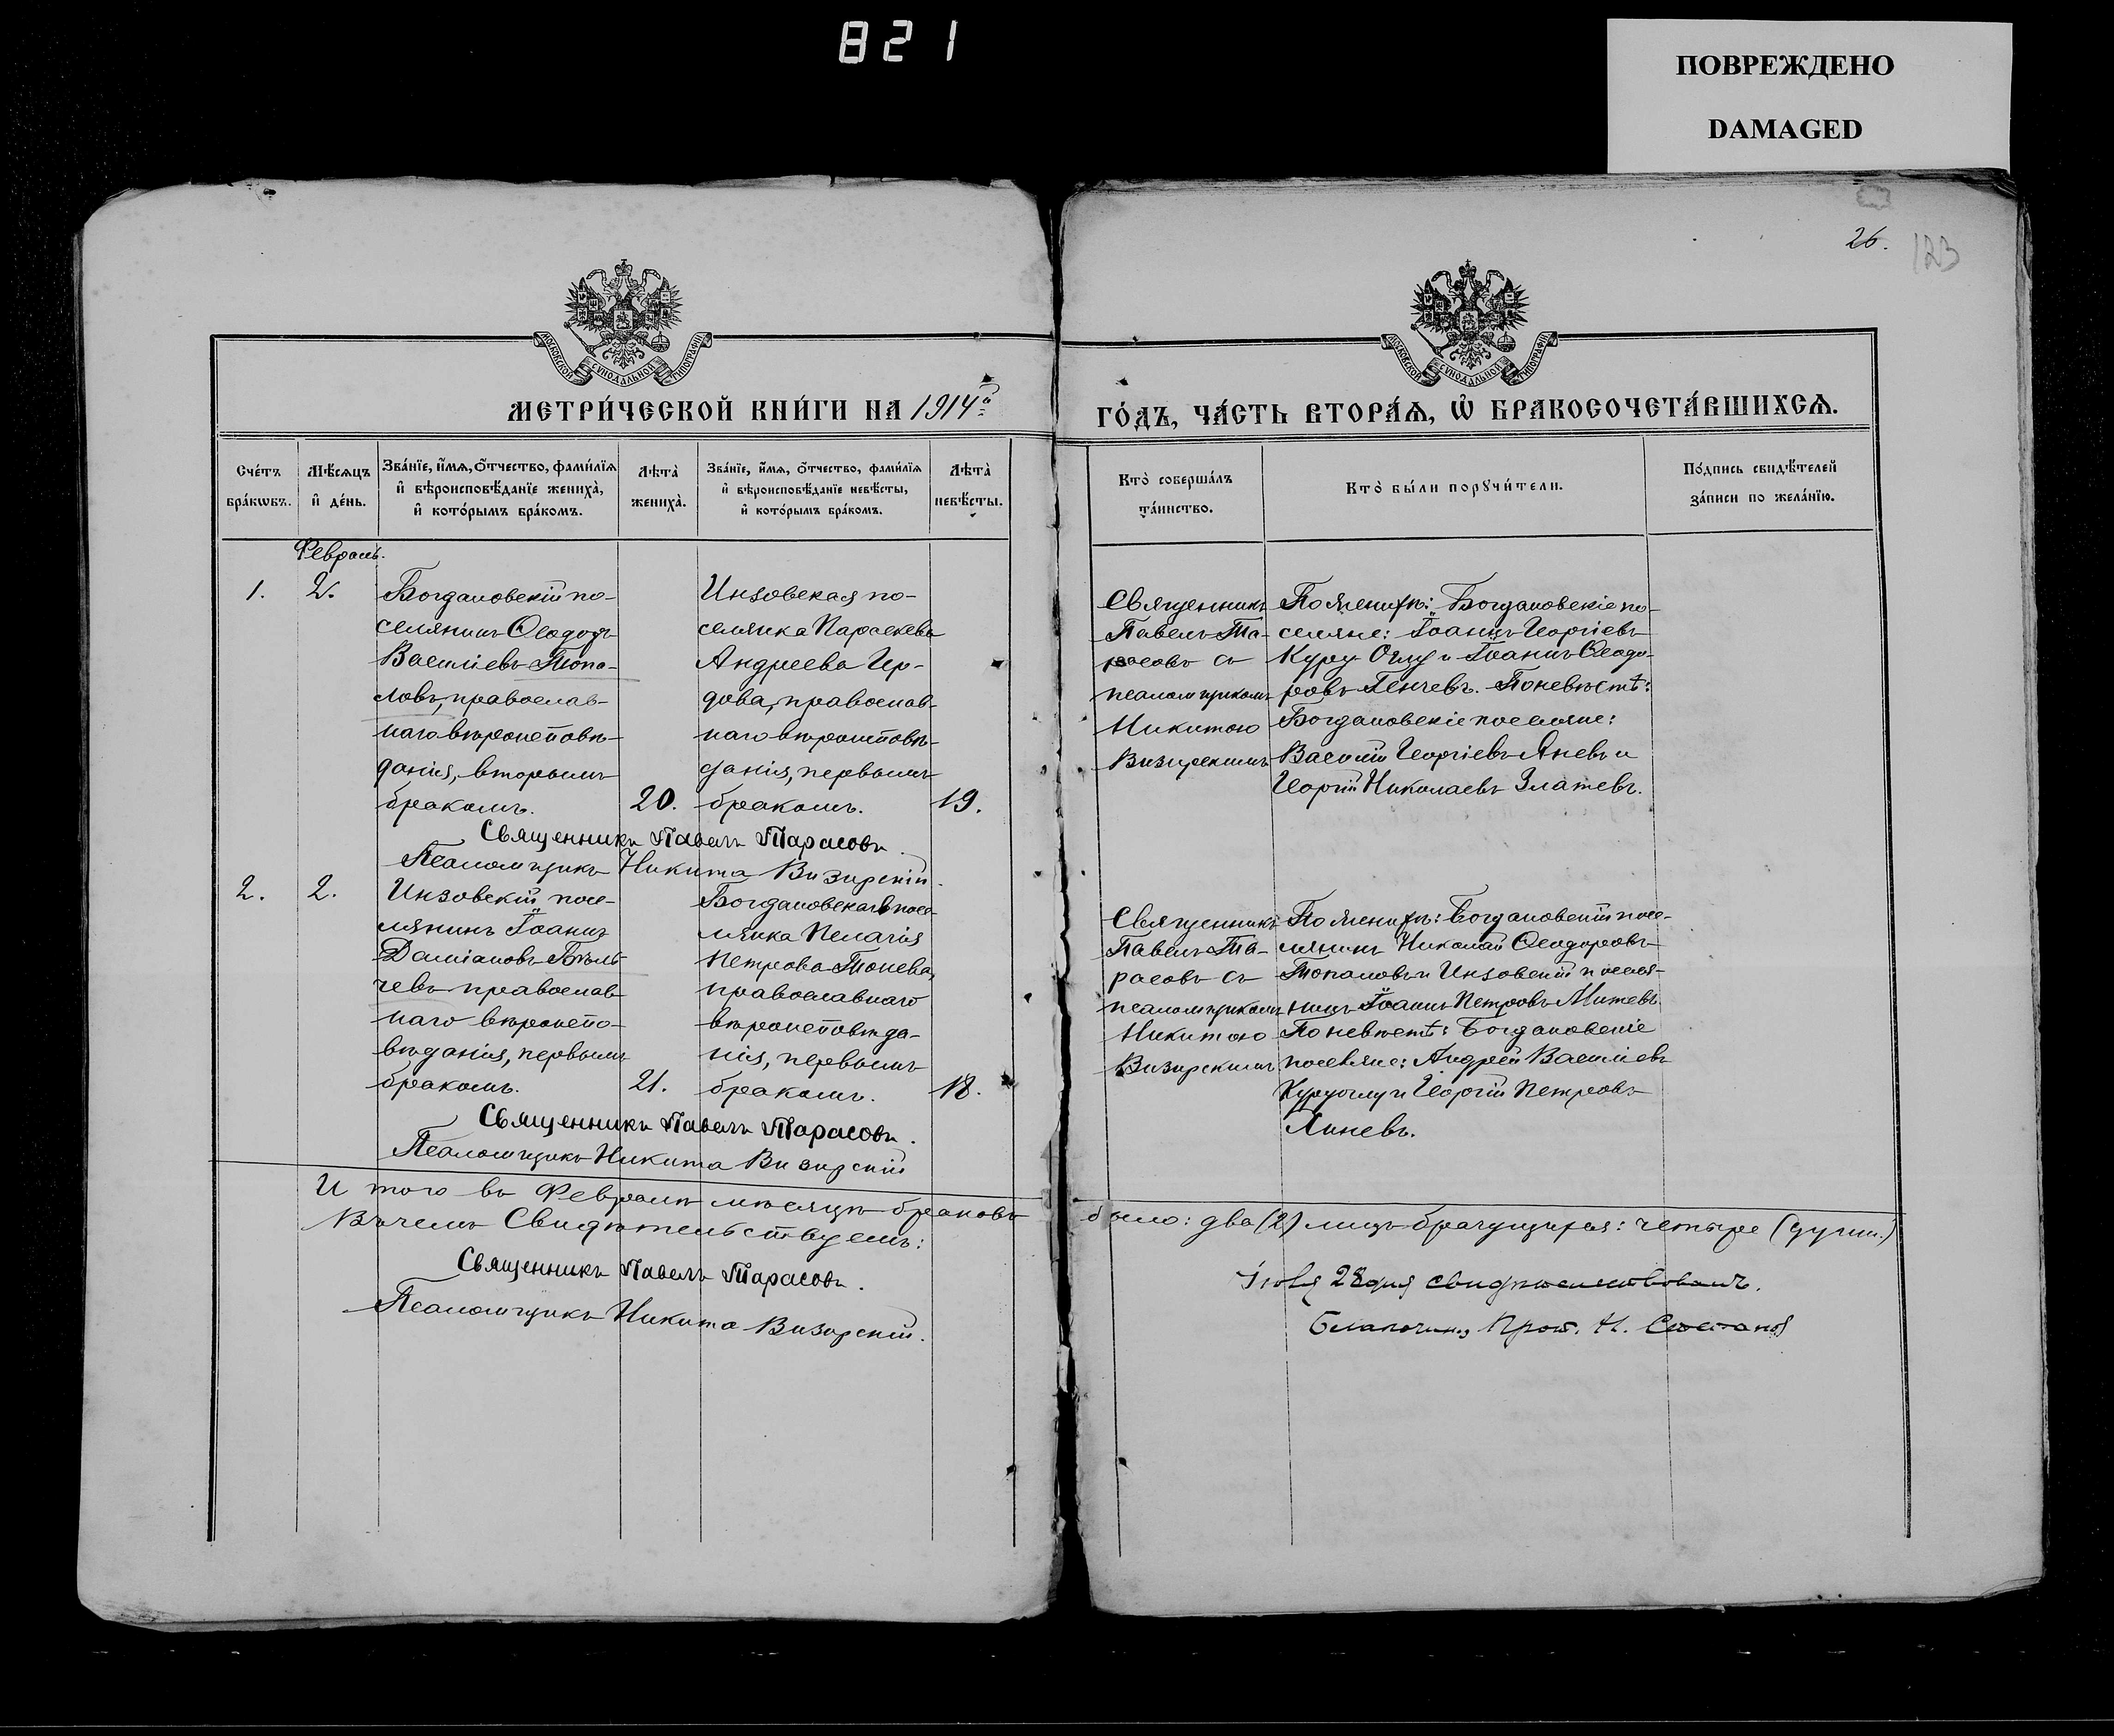 821
ПОВРЕЖДЕНО
DAMAGED
26.
123
МОСКОВСКОЙ СУНОДАЛЬНОЙ ТИПОГРАФІИ
МОСКОВСКОЙ СУНОДАЛЬНОЙ ТИПОГРАФІИ
МЕТРИ́ЧЕСКОЙ КНИ́ГИ НА 1914й
ГО́ДЪ, ЧА́СТЬ ВТОРА́Ѧ, Ѡ҆ БРАКОСОЧЕТА́ВШИХСѦ.
Сче́тъ
бра́кѡвъ.
Мѣ́сѧцъ
и҆ де́нь.
Зва́нїе, и҆́мѧ, ѻ҆́тчество, фами́лїѧ
и҆ вѣроисповѣ́данїе жениха̀,
и҆ кото́рымъ бра́комъ.
Лѣта̀
жениха̀.
Зва́нїе, и҆́мѧ, ѻ҆́тчество, фами́лїѧ
и҆ вѣроисповѣ́данїе невѣ́сты,
и҆ кото́рымъ бра́комъ.
Лѣта̀
невѣ́сты.
Кто̀ соверша́лъ
та́инство.
Кто̀ бы́ли порꙋчи́тели.
По́дпись свидѣ́телей
за́писи по жела́нїю.
Февраль.
1.
2.
Богдановскій по-
селянинъ Ѳеодоръ
Василіевъ Топа-
ловъ, православ-
наго вѣроисповѣ-
данія, вторымъ
бракомъ.
20.
Инзовская по-
селянка Параскева
Андреева Гер-
дова, православ-
наго вѣроисповѣ-
данія, первымъ
бракомъ.
19.
Священникъ
Павелъ Та-
расовъ съ
псаломщикомъ
Никитою
Визирскимъ
По женихѣ: Богдановскіе по-
селяне: Іоаннъ Георгіевъ
Куру-Оглу и Іоаннъ Ѳеодо-
ровъ Генчевъ. По невѣстѣ:
Богдановскіе поселяне:
Василій Георгіевъ Яневъ и
Георгій Николаевъ Златевъ.
Священникъ Павелъ Тарасовъ.
Псаломщикъ Никита Визирскій.
2.
2.
Инзовскій посе-
лянинъ Іоаннъ
Даміановъ Бѣль-
чевъ православ-
наго вѣроиспо-
вѣданія, первымъ
бракомъ.
21.
Богдановская посе-
лянка Пелагія
Петрова Тонева,
православнаго
вѣроисповѣда-
нія, первымъ
бракомъ.
18.
Священникъ
Павелъ Та-
расовъ съ
псаломщикомъ
Никитою
Визирскимъ
По женихѣ: Богдановскій посе-
лянинъ Николай Ѳеодоровъ
Топаловъ и Инзовскій поселя-
нинъ Іоаннъ Петровъ Митевъ.
По невѣстѣ: Богдановскіе
поселяне: Андрей Василіевъ
Куруоглу и Георгій Петровъ
Линевъ.
Священникъ Павелъ Тарасовъ.
Псаломщикъ Никита Визирскій
Итого въ Февралѣ мѣсяцѣ браковъ
было: два (2) лицъ брачущихся: четыре (души.)
Въ чемъ Свидѣтельствуемъ:
Священникъ Павелъ Тарасовъ.
Псаломщикъ Никита Визирскій.
Іюля 28 дня свидѣтельствовалъ.
Благочинн. Прот. Н.